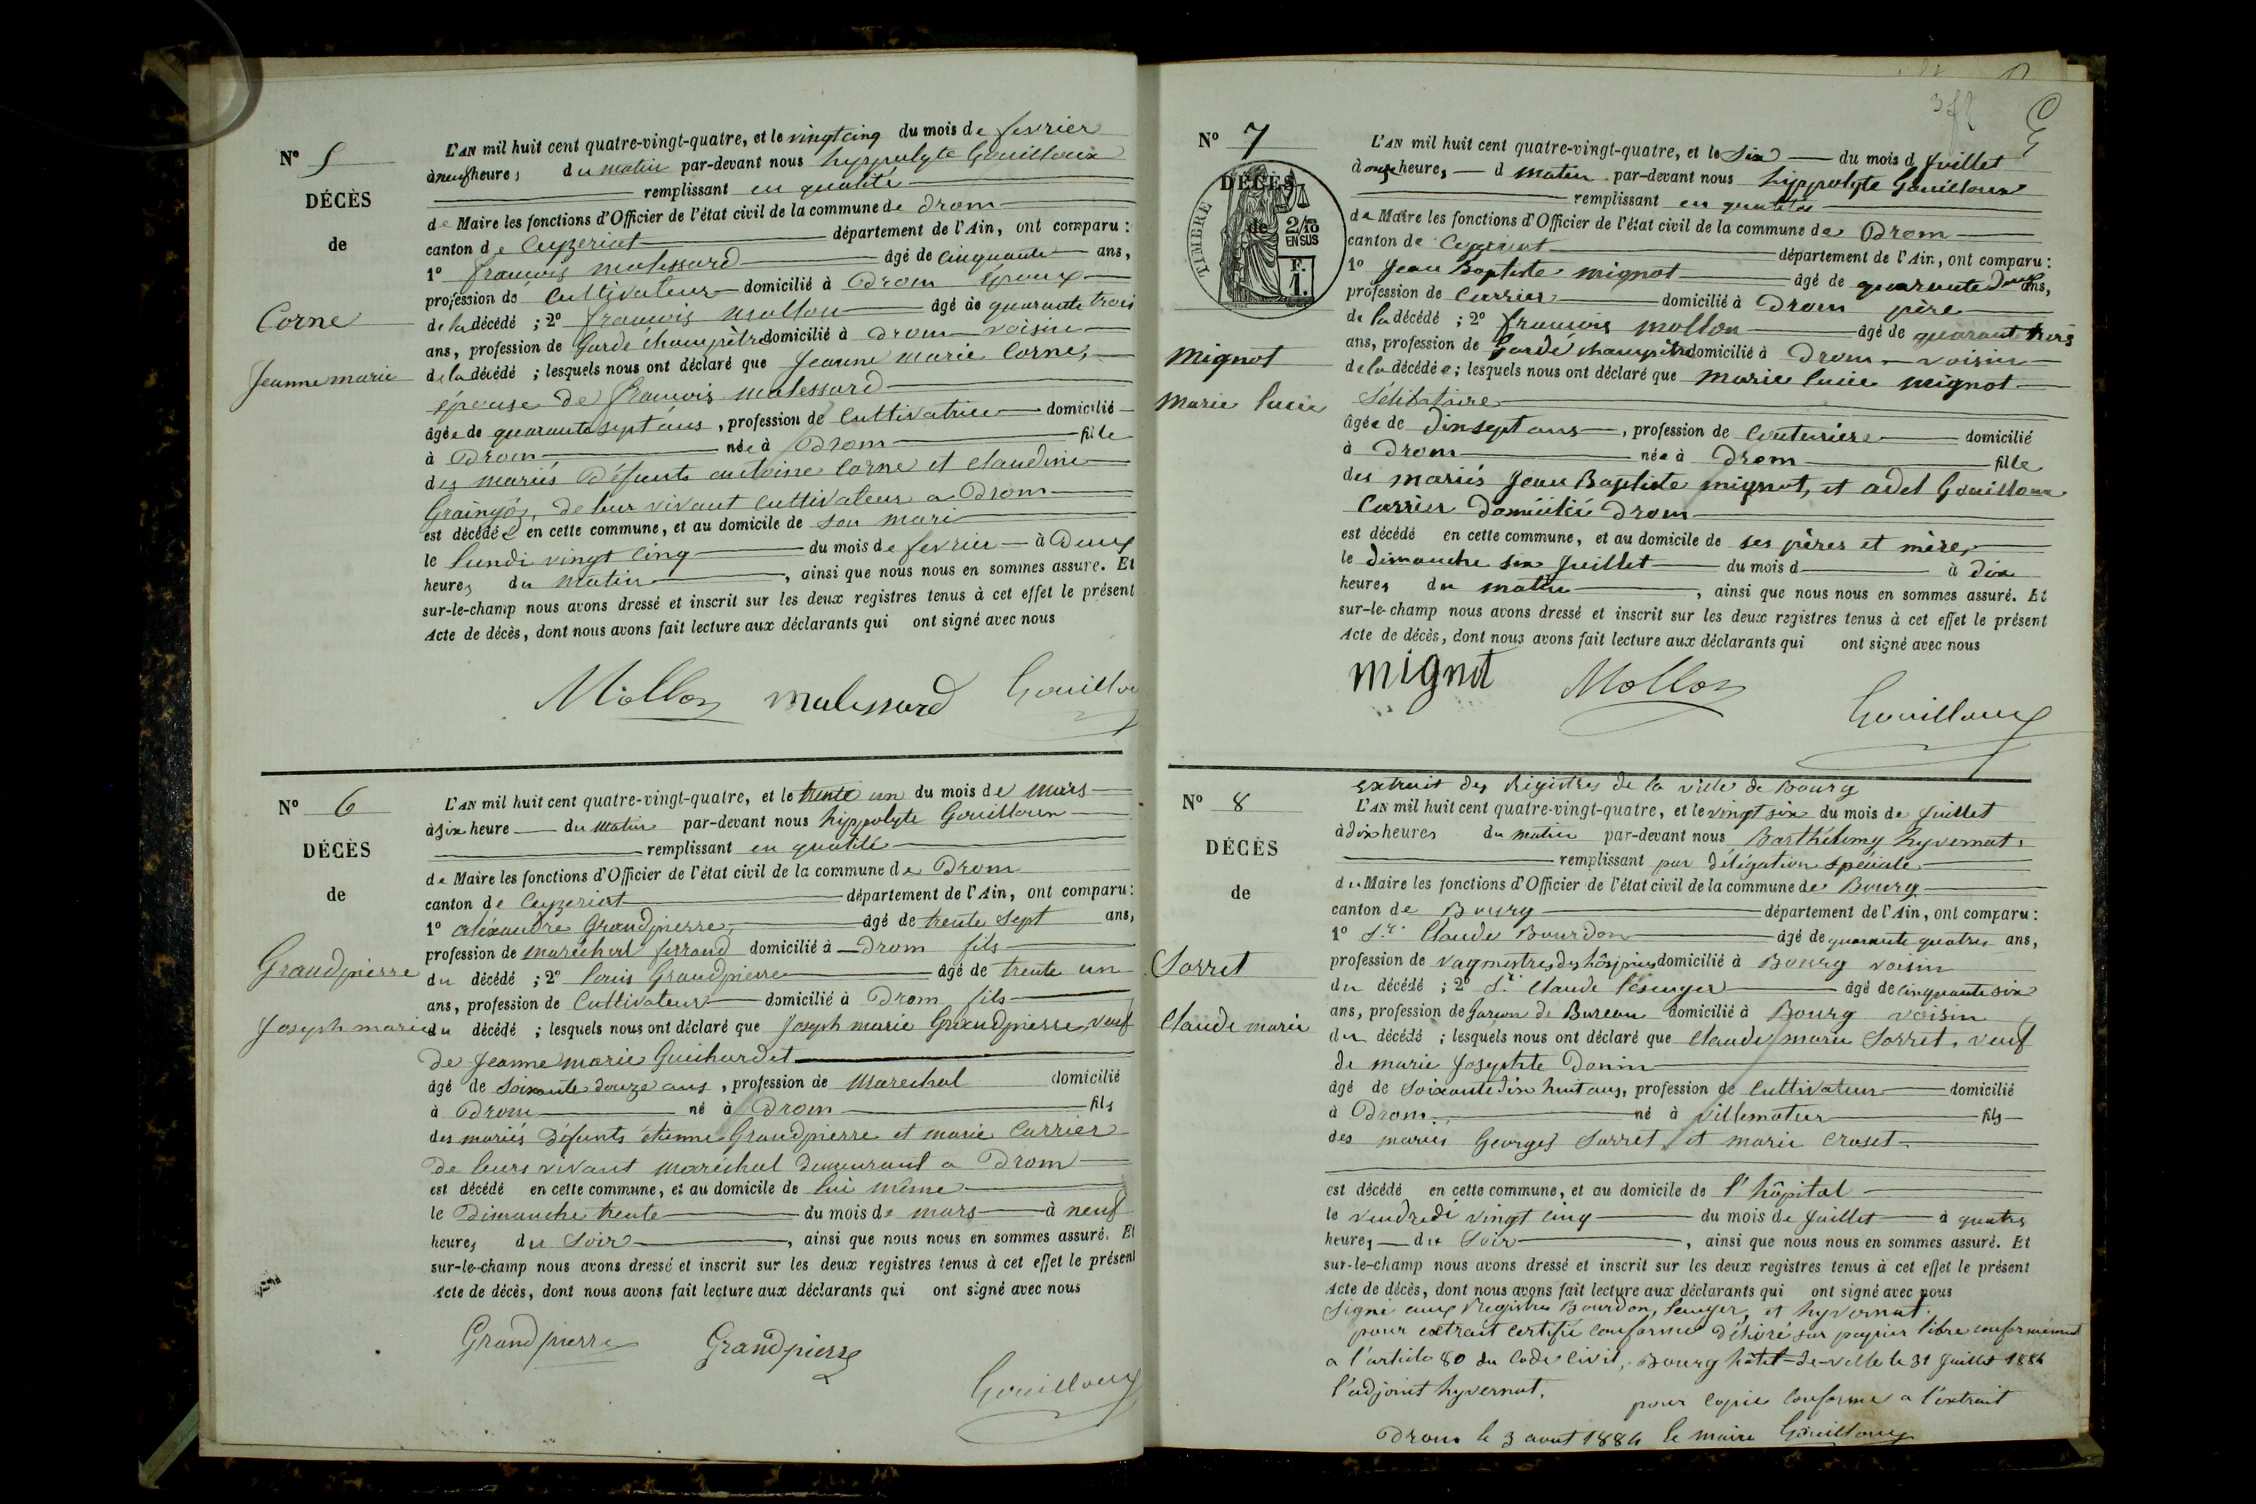 N° 5
DÉCÈS
de
Corne
Jeanne marie
L'AN mil huit cent quatre-vingt-quatre, et le vingt cinq du mois de fevrier
à neuf heures du matin par-devant nous hyppolyte Gouilloux
remplissant en qualité
de Maire les fonctions d'Officier de l'état civil de la commune de Drom
canton de Ceyzeriat département de l'Ain, ont comparu :
1° françois malessard âgé de cinquante ans,
profession de Cultivateur domicilié à Drom Époux
de la décédé ; 2° françois mollon âgé de quarante trois
ans, profession de Garde champêtre domicilié à Drom voisin
de la décédé ; lesquels nous ont déclaré que Jeanne marie Corne,
épouse de françois malessard
âgée de quarante sept ans, profession de Cultivatrice domicilié
à Drom née à Drom fille
des mariés Défunts antoine Corne et Claudine
de leur vivant cultivateur a Drom
est décédée en cette commune, et au domicile de son mari
le lundi vingt cinq du mois de fevrier à Deux
heures du matin, ainsi que nous nous en sommes assuré. Et
sur-le-champ nous avons dressé et inscrit sur les deux registres tenus à cet effet le présent
Acte de décès, dont nous avons fait lecture aux déclarants qui ont signé avec nous
Mollon malessard Gouillou
N° 6
DÉCÈS
de
Grandpierre
Joseph marie
L'AN mil huit cent quatre-vingt-quatre, et le trente un du mois de mars
à six heure du matin par-devant nous hippolyte Gouilloux
remplissant en qualité
de Maire les fonctions d'Officier de l'état civil de la commune de Drom
canton de Ceyzeriat département de l'Ain, ont comparu :
1° aléxandre Grandpierre, âgé de trente sept ans,
profession de maréchal ferrand domicilié à Drom fils
du décédé ; 2° louis Grandpierre âgé de trente un
ans, profession de Cultivateur domicilié à Drom fils
du décédé ; lesquels nous ont déclaré que Joseph marie Grandpierre, veuf
de Jeanne marie Guichardet
âgé de soixante douze ans, profession de Marechal domicilié
à Drom né à Drom fils
des mariés Défunts étienne Grandpierre et marie Carrier
de leurs vivant maréchal demeurant a Drom
est décédé en cette commune, et au domicile de lui même
le Dimanche trente du mois de mars à neuf
heures du soir, ainsi que nous nous en sommes assuré. Et
sur-le-champ nous avons dressé et inscrit sur les deux registres tenus à cet effet le présent
Acte de décès, dont nous avons fait lecture aux déclarants qui ont signé avec nous
Grandpierre Grandpierre
Gouilloux
N° 7
DÉCÈS
de
TIMBRE
2/10
EN SUS
F.
1.
mignot
marie lucie
L'AN mil huit cent quatre-vingt-quatre, et le Six du mois d Juillet
à onze heures d matin par-devant nous hippolyte Gouilloux
remplissant en qualité
de Maire les fonctions d'Officier de l'état civil de la commune de Drom
canton de Ceyzeriat département de l'Ain, ont comparu :
1° Jean Baptiste mignot âgé de quarante Deux ans,
profession de Carrier domicilié à Drom père
de la décédé ; 2° françois mollon âgé de quarante trois
ans, profession de Garde champêtre domicilié à Drom voisin
de la décédée ; lesquels nous ont déclaré que marie lucie mignot
Célibataire
âgée de dixsept ans, profession de Couturière domicilié
à Drom née à Drom fille
des mariés Jean Baptiste mignot, et adel Gouilloux
Carrier domicilié Drom
est décédé en cette commune, et au domicile de ses pères et mère,
le dimanche six Juillet du mois d à dix
heures du matin, ainsi que nous nous en sommes assuré. Et
sur-le-champ nous avons dressé et inscrit sur les deux registres tenus à cet effet le présent
Acte de décès, dont nous avons fait lecture aux déclarants qui ont signé avec nous
mignot Mollon
Gouilloux
extrait des Régistres de la ville de Bourg
N° 8
DÉCÈS
de
Sorret
Claude marie
L'AN mil huit cent quatre-vingt-quatre, et le vingt six du mois de Juillet
à dix heures du matin par-devant nous Barthélemy hyvernat,
remplissant par délégation spéciale
du Maire les fonctions d'Officier de l'état civil de la commune de Bourg
canton de Bourg département de l'Ain, ont comparu :
1° Sr Claude Bourdon âgé de quarante quatre ans,
profession de vagmestre des hôspices domicilié à Bourg voisin
du décédé ; 2° Sr Claude âgé de cinquante six
ans, profession de Garcon de Bureau domicilié à Bourg voisin
du décédé ; lesquels nous ont déclaré que Claude marie Sorret, veuf
de marie Josephte Donin
âgé de soixante dix huit ans, profession de cultivateur domicilié
à Drom né à villemoteur fils
des mariés Georges Sorret et marie Croset
est décédé en cette commune, et au domicile de l'hôpital
le vendredi vingt cinq du mois de Juillet à quatre
heures du Soir, ainsi que nous nous en sommes assuré. Et
sur-le-champ nous avons dressé et inscrit sur les deux registres tenus à cet effet le présent
Acte de décès, dont nous avons fait lecture aux déclarants qui ont signé avec nous
Signé aux Régistres Bourdon, et hyvernat.
pour extrait certifié conforme délivré sur papier libre conformément
a l'article 80 du Code Civil, Bourg hôtel-de-ville le 31 Juillet 1884
l'adjoint hyvernat.
pour copie conforme a l'extrait
Drom le 3 aout 1884 le maire Gouilloux